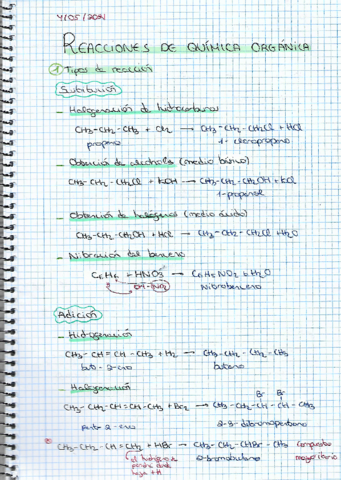 4/05/2021
REACCIONES DE QUÍMICA ORGÁNICA
① Tipos de reacción
Sustitución
– Halogenación de hidrocarburos
CH3-CH2-CH3 + Cl2 → CH3-CH2-CH2Cl + HCl
propano 1-cloropropano
– Obtención de alcoholes (medio básico)
CH3-CH2-CH2Cl + KOH → CH3-CH2-CH2OH + KCl
1-propanol
– Obtención de halógenos (medio ácido)
CH3-CH2-CH2OH + HCl → CH3-CH2-CH2Cl + H2O
– Nitración del benceno
C6H6 + HNO3 → C6H5NO2 + H2O
OH-NO2 Nitrobenceno
Adición
– Hidrogenación
CH3-CH=CH-CH3 + H2 → CH3-CH2-CH2-CH3
but-2-eno butano
– Halogenación
Br Br
CH3-CH2-CH=CH-CH3 + Br2 → CH3-CH2-CH-CH-CH3
Pent-2-eno 2-3-dibromopentano
CH3-CH2-CH=CH2 + HBr → CH3-CH2-CHBr-CH3 Compuesto
el hidrógeno se 2-bromobutano mayoritario
donde
haya +H